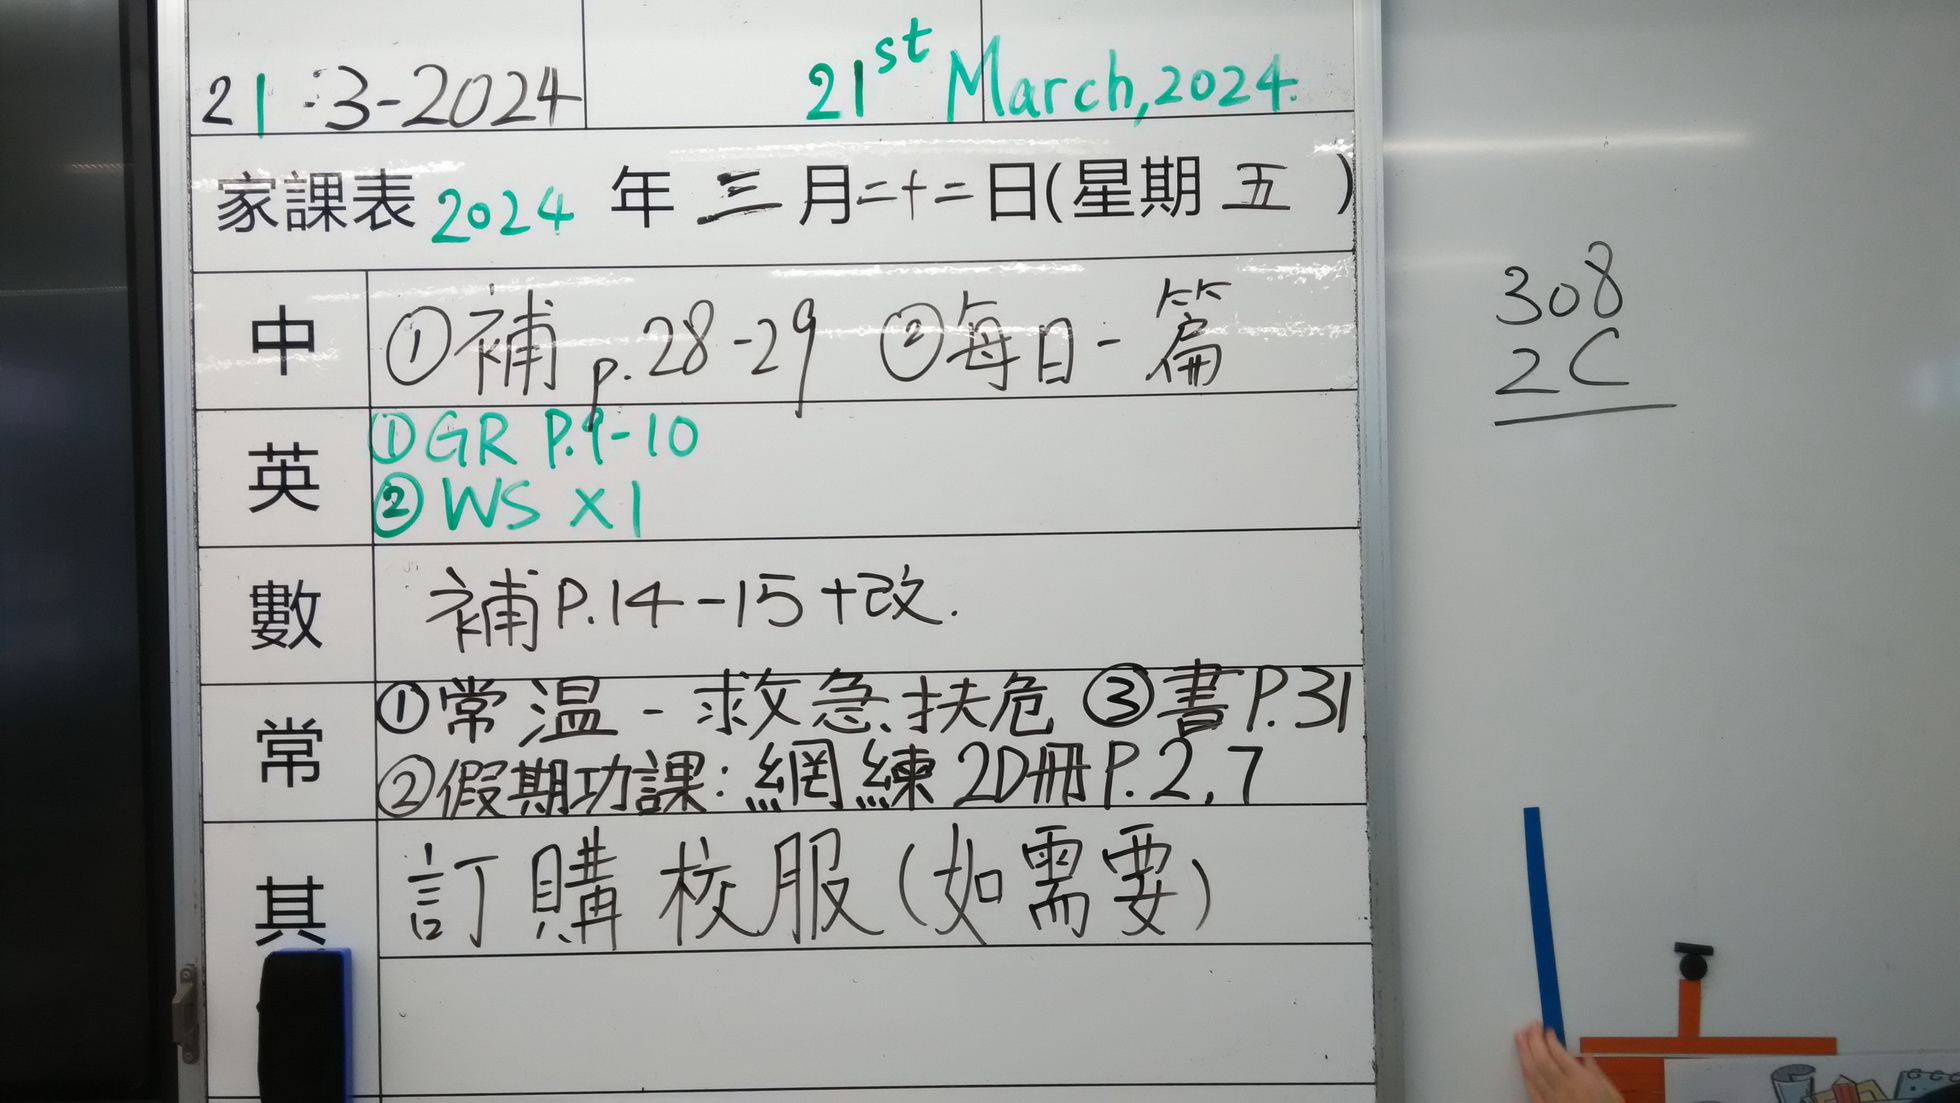 21 · 3 - 2024
21st March, 2024.
家課表 2024 年 三 月 二十二 日(星期 五 )
中 ①補 p. 28 - 29 ②每日一篇
英 ①GR P.9-10
②WS X1
數 補 P.14-15 + 改.
常 ①常温 - 救急扶危 ③書P.31
②假期功課: 網練 2D冊 P.2,7
其 訂購校服 (如需要)
308
2C